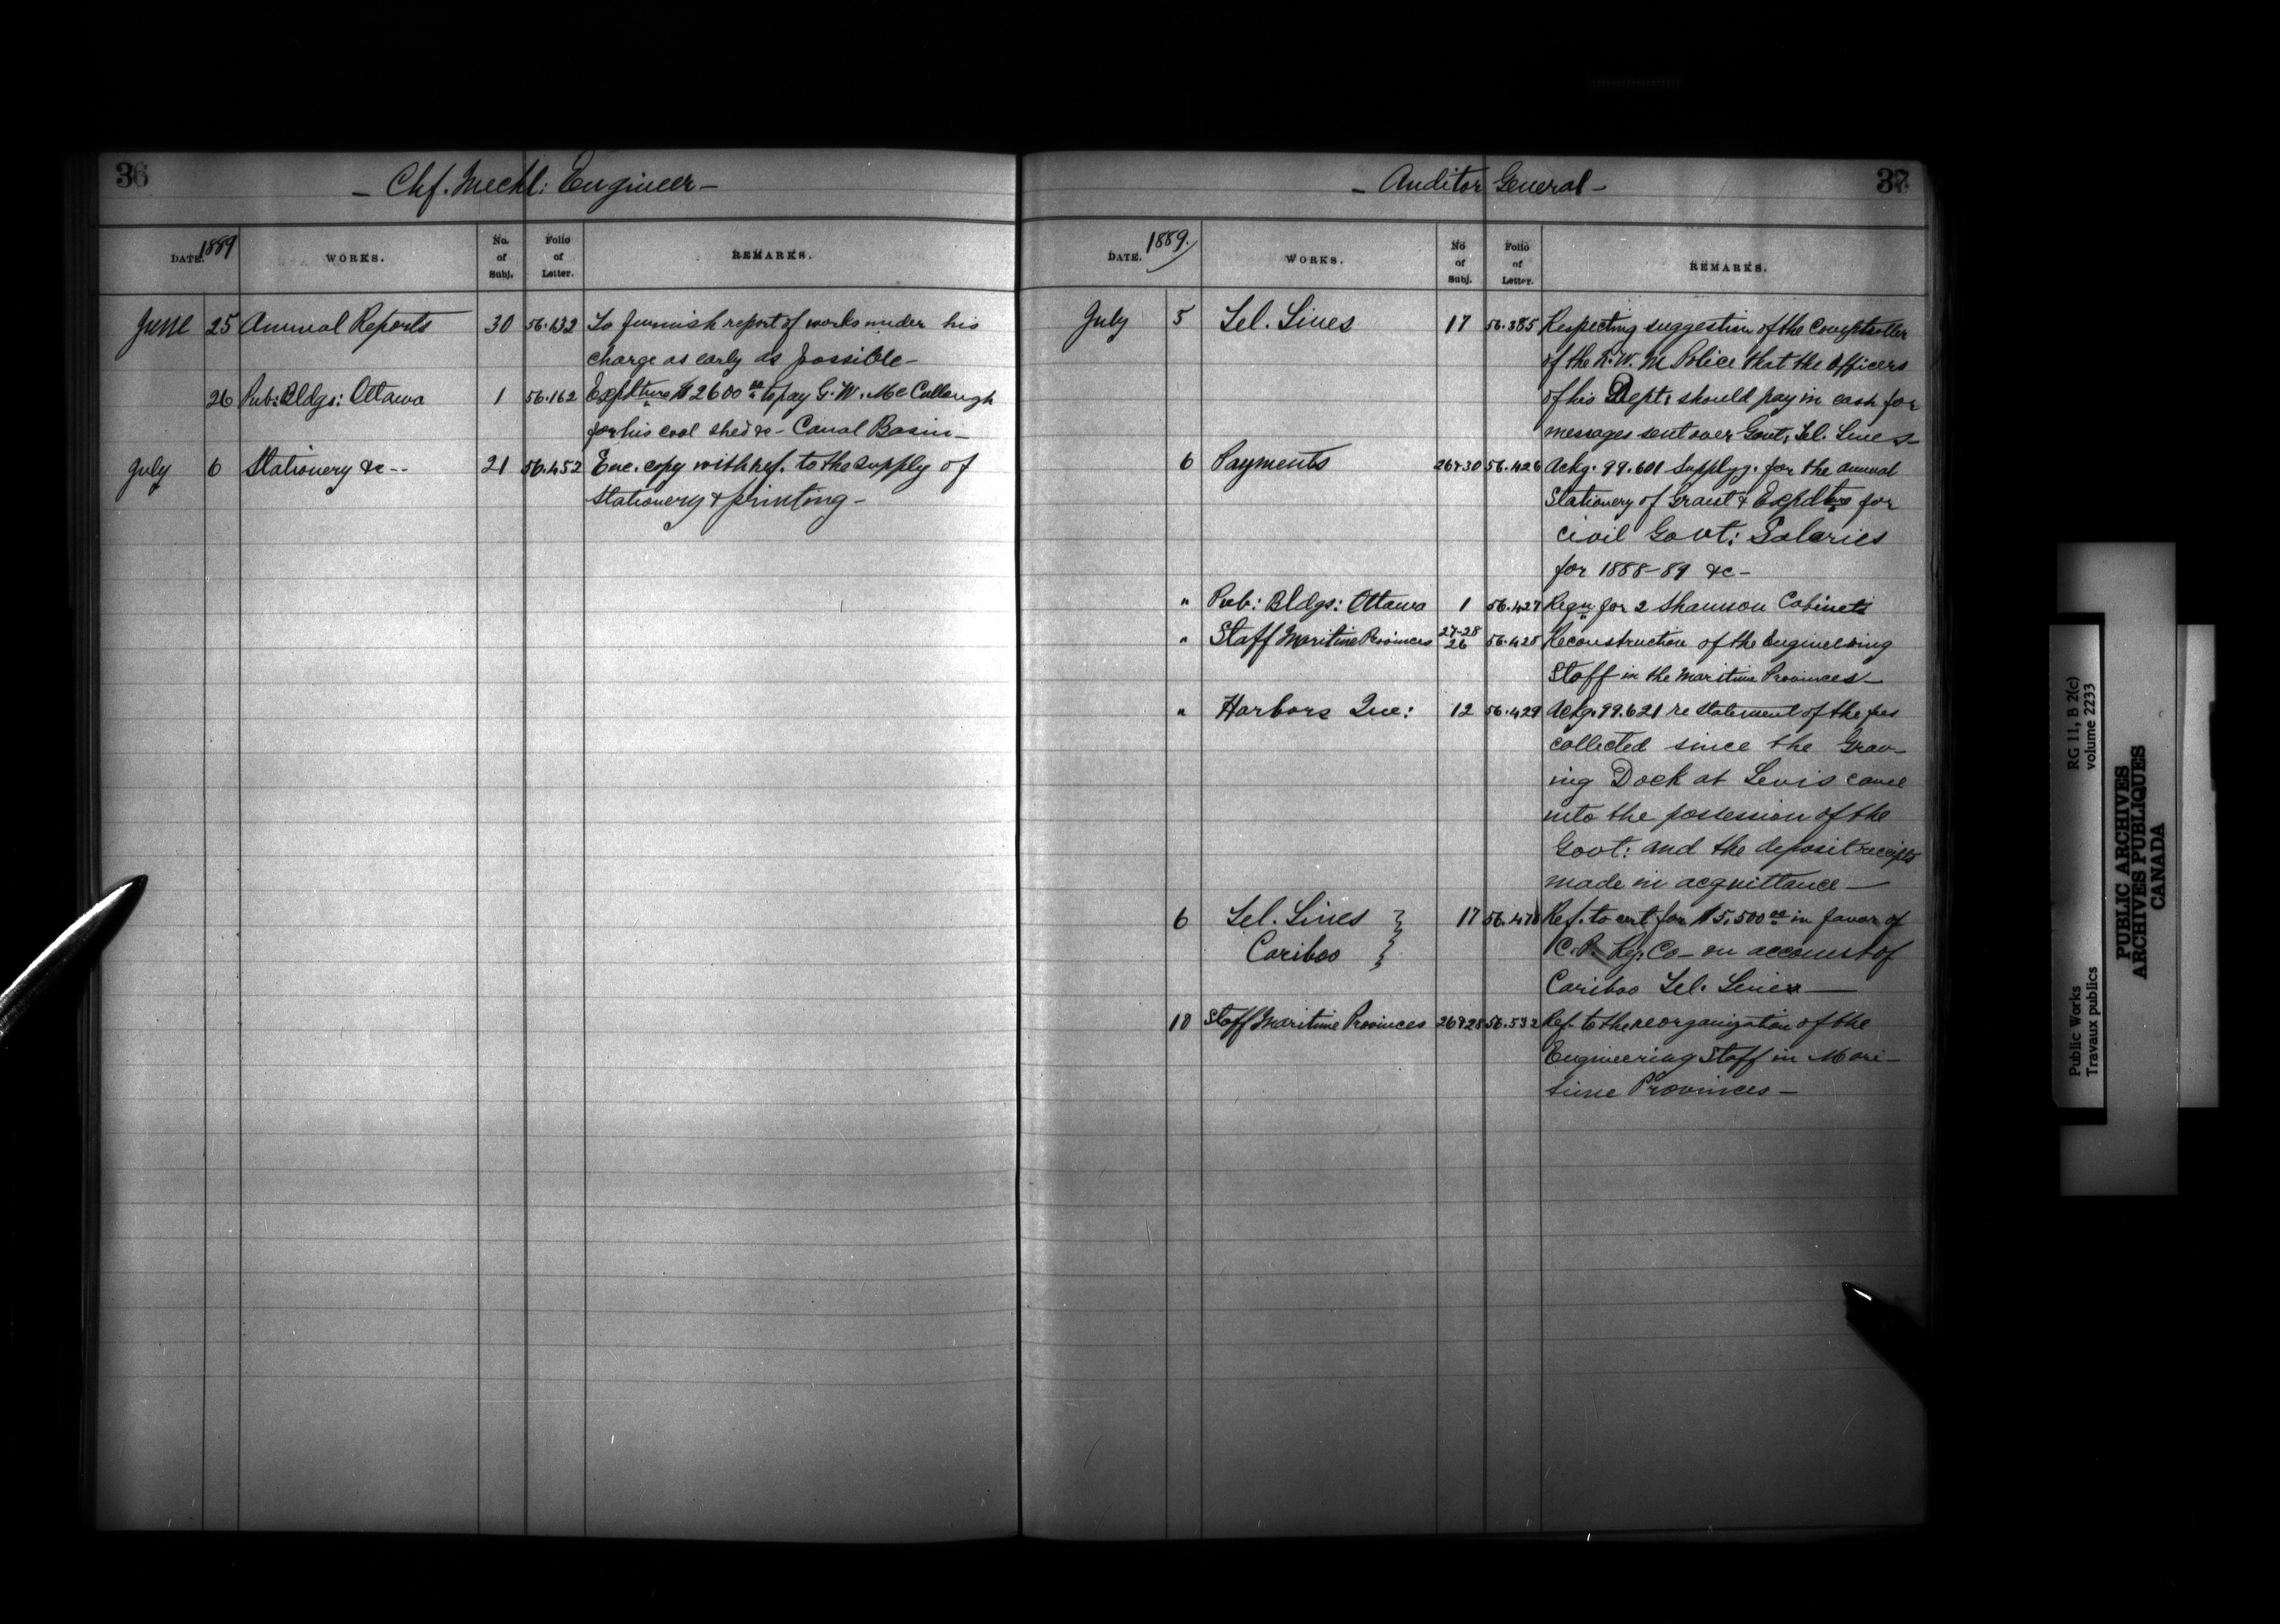 36
- Chf. Mechl: Engineer -
DATE. 1889 WORKS. No. of Subj. Folio of Letter. REMARKS.
June 25 Annual Reports 30 56.132 To furnish report of works under his
charge as early as possible -
26 Pub: Bldgs: Ottawa 1 56.162 Expdture $2600 00 to pay G. W. McCullough
for his coal shed &c - Canal Basin -
July 6 Stationery &c -- 21 56.452 Enc. copy with ref. to the supply of
Stationery & printing -
37
- Auditor General -
DATE. 1889. WORKS. No of Subj. Folio of Letter. REMARKS.
July 5 Tel. Lines 17 56.385 Respecting suggestion of the Comptroller
of the N. W. M Police that the Officers
of his Dept: should pay in cash for
messages sent over Govt: Tel. Lines -
6 Payments 26&30 56.426 Ackg. 99.601 Supplyg. for the annual
Stationery of Grant & Expdture for
Civil Govt: Salaries
for 1888-89 &c -
" Pub: Bldgs: Ottawa 1 56.427 Reqn for 2 Shannon Cabinets
" Staff Maritime Provinces 27-28 26 56.428 Reconstruction of the Engineering
Staff in the Maritime Provinces -
" Harbors Que: 12 56.429 Ackg. 99.621 re statement of the fees
collected since the Grav-
ing Dock at Levis came
into the possession of the
Govt: and the deposit receipts
made in acquittance -
6 Tel. Lines } 17 56.478 Ref. to cert for $5,500 00 in favor of
Cariboo } C. P. Ry. Co - on account of
Cariboo Tel. Lines -
10 Staff Maritime Provinces 26&28 56.532 Ref. to the reorganization of the
Engineering Staff in Mari-
time Provinces -
Public Works RG 11, B 2(c)
Travaux publics volume 2233
PUBLIC ARCHIVES
ARCHIVES PUBLIQUES
CANADA